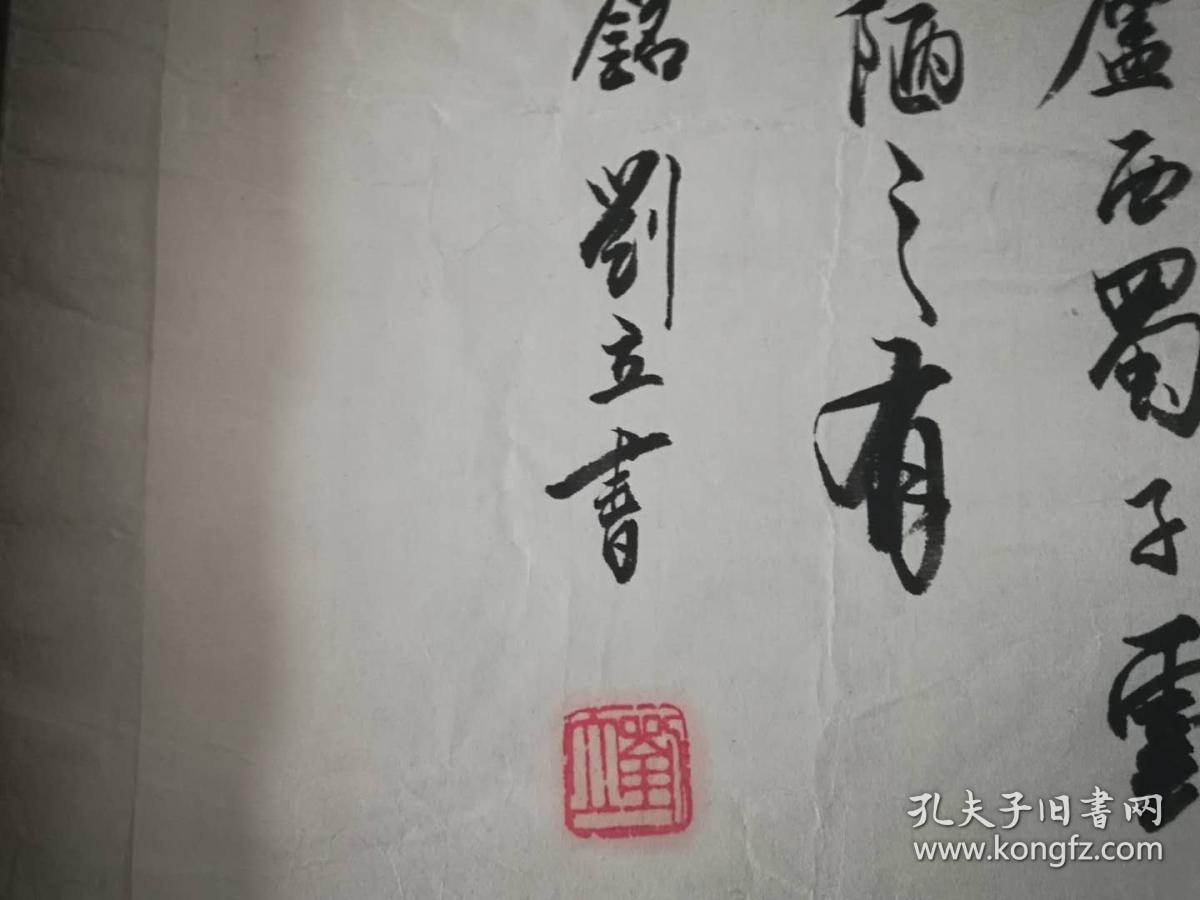 廬西蜀子雲
陋之有
銘劉立書
孔夫子旧书网
www.kongfz.com